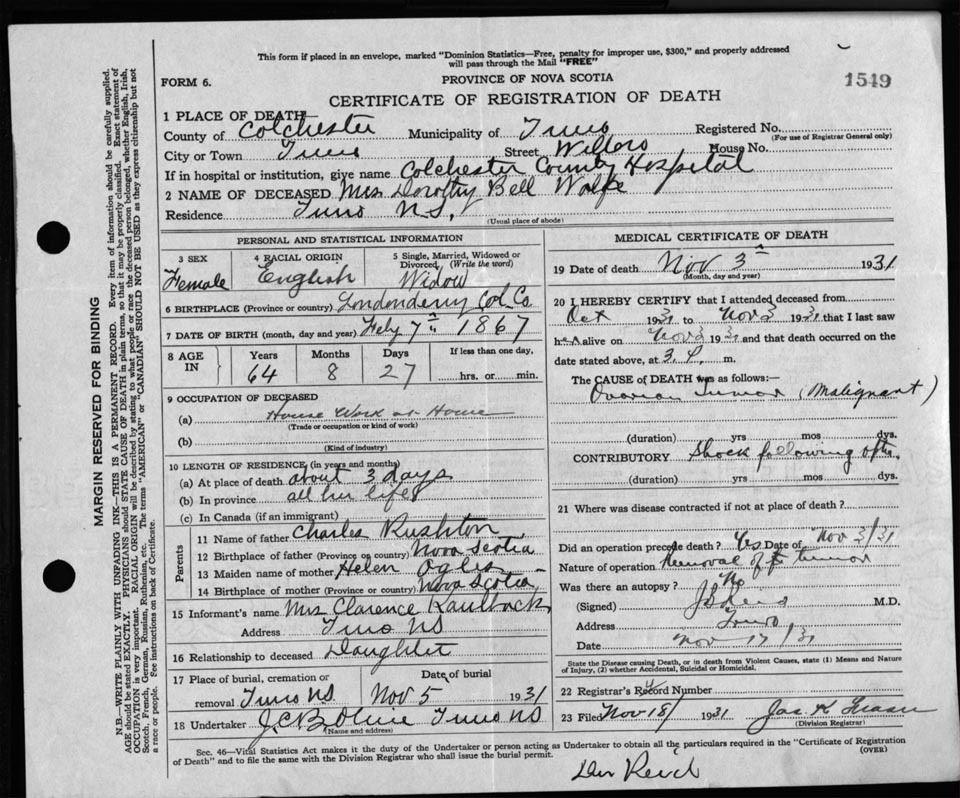 This form if placed in an envelope, marked "Dominion Statistics—Free, penalty for improper use, $300," and properly addressed
will pass through the Mail "FREE"
1549
FORM 6.
PROVINCE OF NOVA SCOTIA
CERTIFICATE OF REGISTRATION OF DEATH
1 PLACE OF DEATH
County of Colchester Municipality of Truro Registered No.
(For use of Registrar General only)
City or Town Truro Street Willow House No.
If in hospital or institution, give name Colchester County Hospital
2 NAME OF DECEASED Mrs Dorothy Bell Wolfe
Residence Truro N.S.
(Usual place of abode)
PERSONAL AND STATISTICAL INFORMATION
3 SEX 4 RACIAL ORIGIN 5 Single, Married, Widowed or
Divorced (Write the word)
Female English Widow
6 BIRTHPLACE (Province or country) Londonderry Col. Co.
7 DATE OF BIRTH (month, day and year) Feby 7th 1867
8 AGE IN Years Months Days If less than one day,
64 8 27 hrs. or min.
9 OCCUPATION OF DECEASED
(a) House Work at Home
(Trade or occupation or kind of work)
(b)
(Kind of industry)
10 LENGTH OF RESIDENCE (in years and months)
(a) At place of death about 3 days
(b) In province all her life
(c) In Canada (if an immigrant)
Parents
11 Name of father Charles Rushton
12 Birthplace of father (Province or country) Nova Scotia
13 Maiden name of mother Helen
14 Birthplace of mother (Province or country) Nova Scotia
15 Informant's name Mrs Clarence Kaulback
Address Truro NS
16 Relationship to deceased Daughter
17 Place of burial, cremation or Date of burial
removal Truro NS Nov 5 1931
18 Undertaker J.C.B. Truro NS
(Name and address)
MEDICAL CERTIFICATE OF DEATH
19 Date of death Nov 3rd 1931
(Month, day and year)
20 I HEREBY CERTIFY that I attended deceased from
Oct 1931 to Nov 3 1931 that I last saw
h alive on Nov 3 1931 and that death occurred on the
date stated above, at 3. P. m.
The CAUSE of DEATH was as follows:—
Ovarian Tumor (Malignant)
(duration) yrs mos dys.
CONTRIBUTORY Shock following
(duration) yrs mos dys.
21 Where was disease contracted if not at place of death?
Did an operation precede death? Yes Date of Nov 3/31
Nature of operation Removal of tumor
Was there an autopsy? No
(Signed) M.D.
Address Truro
Date Nov 17/31
State the Disease causing Death, or in death from Violent Causes, state (1) Means and Nature
of Injury, (2) whether Accidental, Suicidal or Homicidal.
22 Registrar's Record Number
23 Filed Nov 18 1931 Jas. K.
(Division Registrar)
Sec. 46—Vital Statistics Act makes it the duty of the Undertaker or person acting as Undertaker to obtain all the particulars required in the "Certificate of Registration
of Death" and to file the same with the Division Registrar who shall issue the burial permit.
(OVER)
MARGIN RESERVED FOR BINDING
N.B.—WRITE PLAINLY WITH UNFADING INK—THIS IS A PERMANENT RECORD. Every item of information should be carefully supplied.
AGE should be stated EXACTLY. PHYSICIANS should STATE CAUSE OF DEATH in plain terms, so that it may be properly classified. Exact statement of
OCCUPATION is very important. RACIAL ORIGIN will be described by stating to what people or race the deceased person belonged, whether English, Irish,
Scotch, French, German, Russian, Ruthenian, etc. The terms "AMERICAN" or "CANADIAN" SHOULD NOT BE USED as they express citizenship but not
a race or people. See instructions on back of Certificate.